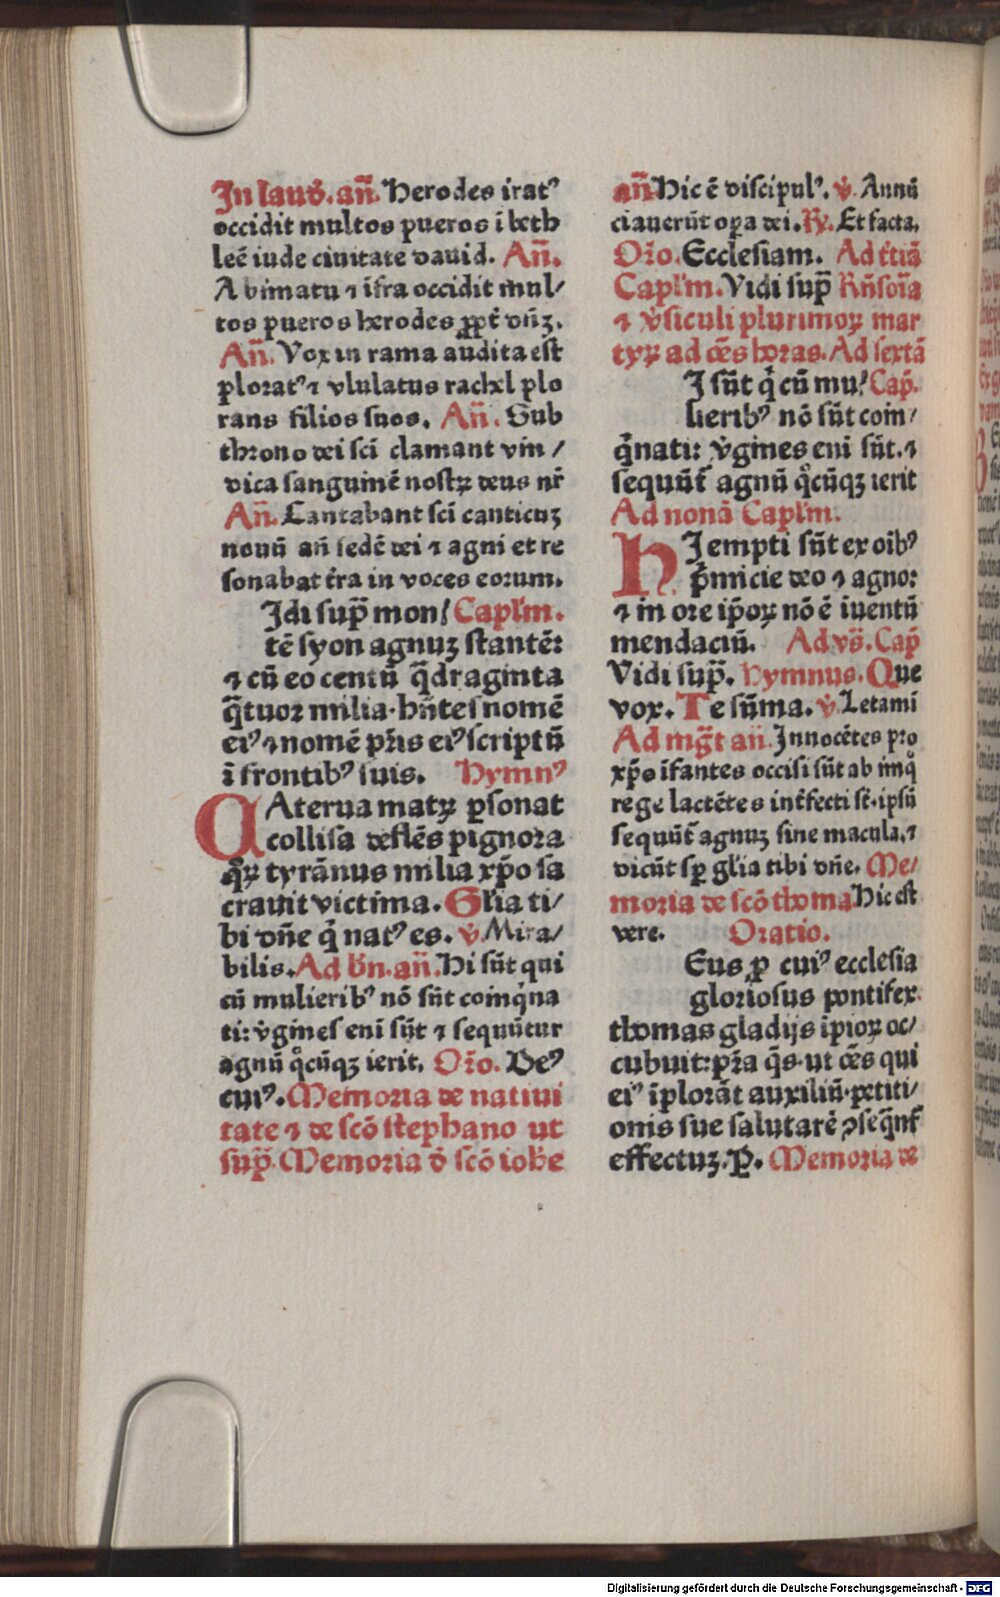 In laud̉. an̄. Herodes irat⁹
occidit multos pueros ī beth
leē iude ciuitate dauid. An̄.
A bimatu ⁊ īfra occidit mul/
tos pueros herodes ꝓpt̄ dn̄ꝫ.
An̄. Vox in rama audita est
plorat⁹ ⁊ vlulatus rachel plo
rans filios suos. An̄. Sub
throno dei sci clamant vin/
dica sanguinē nostꝝ deus nr̄
An̄. Cantabant sci canticuꝫ
nouū an̄ sedē dei ⁊ agni et re
sonabat t̄ra in voces eorum.
Idi sup̄ mon/ Capl'm.
tē syon agnuꝫ stantē:
⁊ cū eo centū q̄draginta
q̄tuor milia. hn̄tes nomē
ei⁹ ⁊ nomē pr̄is ei⁹ scriptū
ī frontib⁹ suis. Hymn⁹
CAterua matꝝ ꝑsonat
collisa deflēs pignora
q̊ꝝ tyrānus milia xp̄o sa
crauit victima. Gl'ia ti/
bi dn̄e q̇ nat⁹ es. v̉. Mira/
bilis. Ad bn̄. an̄. Hi sūt qui
cū mulierib⁹ nō sūt coinq̇na
ti: v̉gines eni sūt ⁊ sequūtur
agnū q̊cūqꝫ ierit. Or̄o. De⁹
cui⁹. Memoria de natiui
tate ⁊ de scō stephano ut
sup̄. Memoria d̉ scō ioh̄e
an̄ Hic ē discipul⁹. v̉. Annū
ciauerūt oꝑa dei. R̷. Et facta.
Or̄o. Ecclesiam. Ad t̄tiā
Capl'm. Vidi sup̄ Rn̄soīa
⁊ v̉siculi plurimoꝝ mar
tyꝝ ad oēs horas. Ad sextā
I sūt q̇ cū mu/ Cap̄.
lierib⁹ nō sūt coin/
q̇nati: v̉gines eni sūt. ⁊
sequūt̄ agnū q̊cūqꝫ ierit
Ad nonā Capl'm.
HI empti sūt ex oib⁹
p̉micie deo ⁊ agno:
⁊ in ore ip̄oꝝ nō ē iuentū
mendaciū. Ad vs̄. Cap̄
Vidi sup̄. Hymnus. Que
vox. Te sūma. v̉. Letami
Ad mg̅t an̄. Innocētes pro
xp̄o īfantes occisi sūt ab iniq̊
rege lactētes int̄fecti st̄. ipsū
sequūt̄ agnuꝫ sine macula. ⁊
dicūt sꝑ gl'ia tibi dn̄e. Me/
moria de scō thoma Hic est
vere. Oratio.
Eus ꝓ cui⁹ ecclesia
gloriosus pontifex
thomas gladijs īpioꝝ oc/
cubuit: pr̄a q̄s. ut oēs qui
ei⁹ īplorāt auxiliū. petiti/
onis sue salutarē ꝯseq̄nt̄
effectuꝫ. P̲. Memoria de
Digitalisierung gefördert durch die Deutsche Forschungsgemeinschaft - DFG